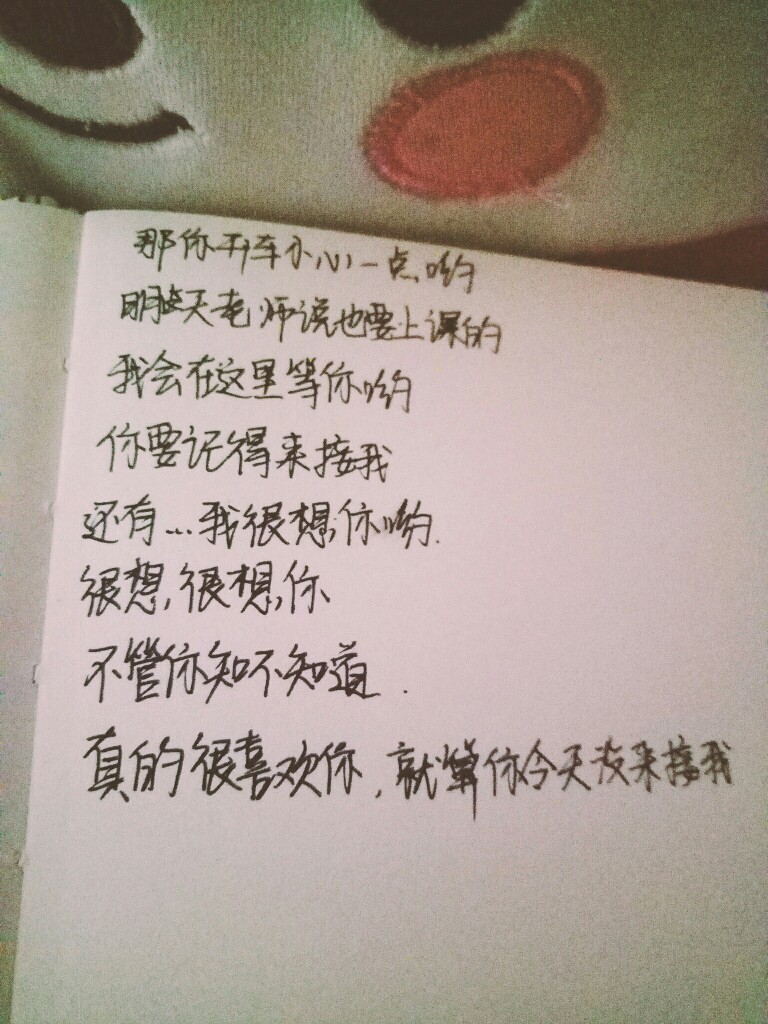 那你开车小心一点哟
明天老师说也要上课的
我会在这里等你哟
你要记得来接我
还有...我很想,你哟.
很想,很想,你
不管你知不知道.
真的很喜欢你,就算你今天没来接我